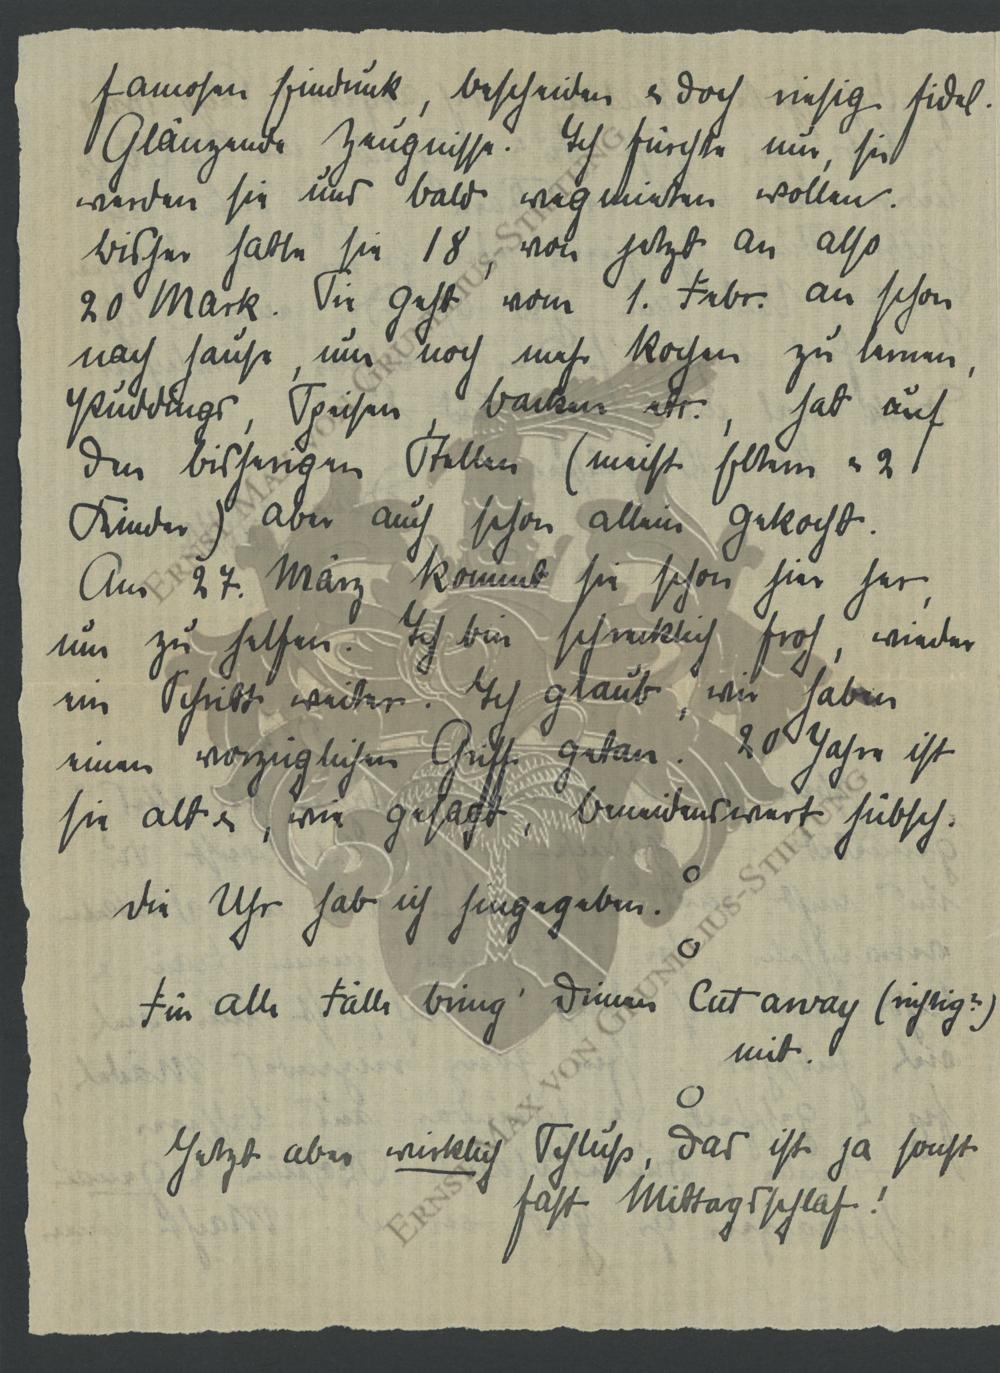 famosen Eindruck, bescheiden & doch riesig fidel.
Glänzende Zeugnisse. Ich fürchte nur, sie
werden sie uns bald wegmieten wollen.
bisher hatte sie 18, von jetzt an also
20 Mark. Sie geht vom 1. Febr. an schon
nach Hause, um noch mehr Kochen zu lernen,
Puddings, Speisen, backen etc., hat auf
den bisherigen Stellen (meist Eltern & 2
Kinder) aber auch schon allein gekocht.
Am 27. März kommt sie schon hier her,
um zu helfen. Ich bin schrecklich froh, wieder
ein Schritt weiter. Ich glaub, wir haben
einen vorzüglichen Griff getan. 20 Jahre ist
sie alt &, wie gesagt, beneidenswert hübsch.
Die Uhr hab ich hingegeben.
Für alle Fälle bring' Deinen Cut away (richtig?)
mit.
Jetzt aber wirklich Schluß, das ist ja sonst
fast Mittagsschlaf!
ERNST-MAX VON GRUNELIUS-STIFTUNG
ERNST-MAX VON GRUNELIUS-STIFTUNG